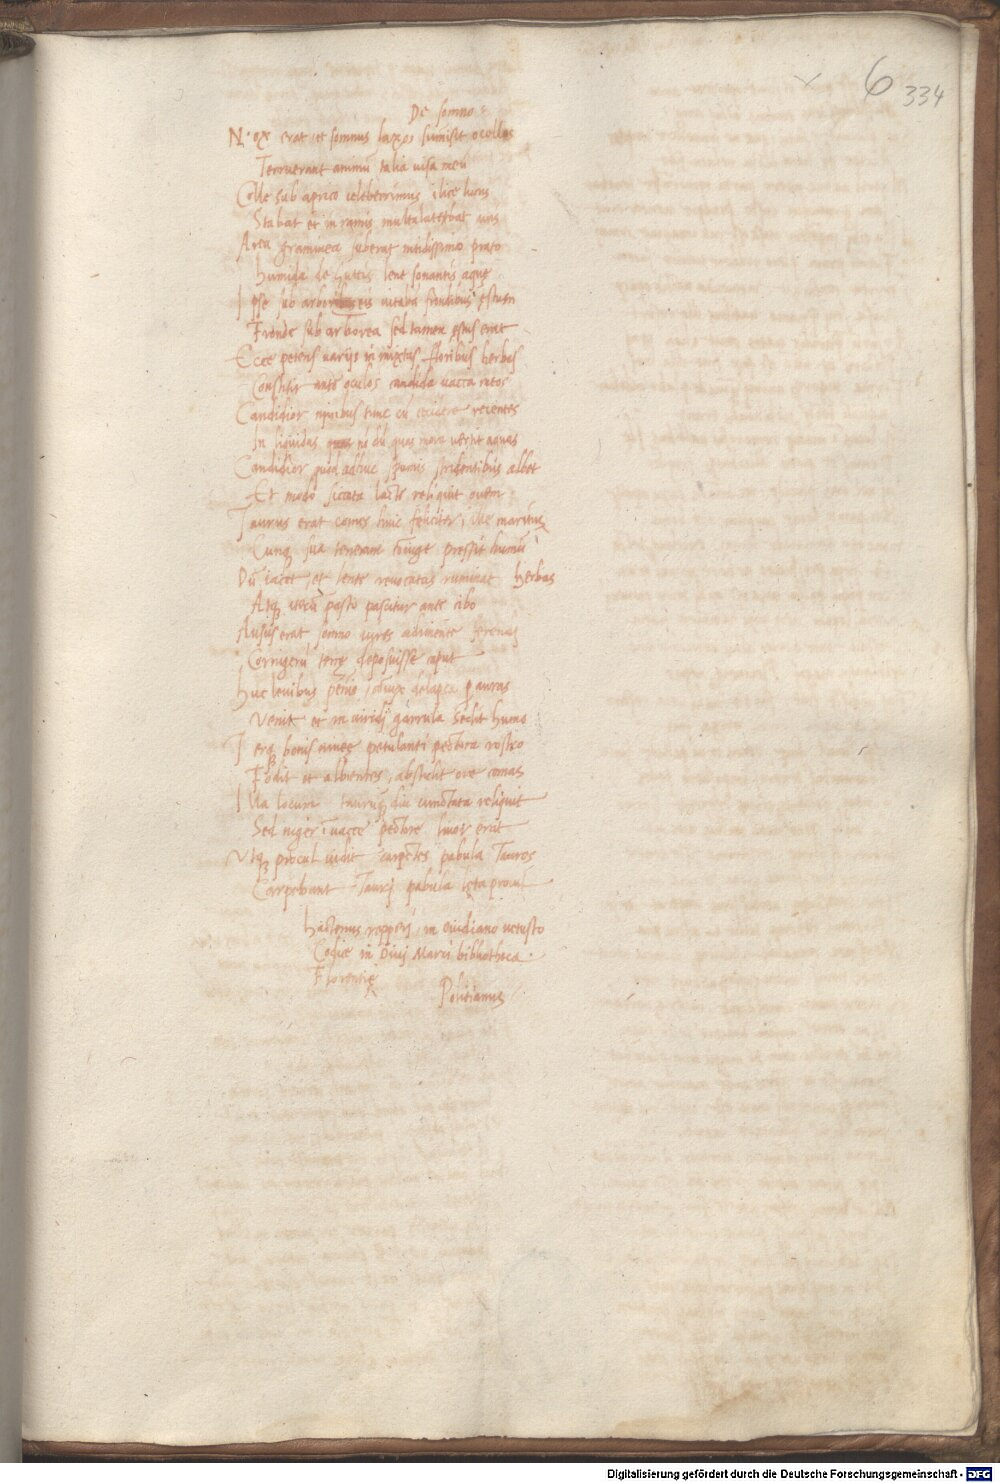 6 334
De somno
Nox erat et somnus laxos sumisit ocellos
Terruerant animũ talia uisa meũ
Colle sub aprico celeberrimus ilice lucus
Stabat et in ramis multa latebat auis
Area graminea suberat nitidissimo prato
humida de guttis lene sonantis aquę
Ipse sub arboreis uitaba frondibus ęstum
Fronde sub arborea sed tamen ęstus erat
Ecce petens uarijs inmixtas floribus herbas
Constitit ante oculos candida uacca meos
Candidior niuibus tunc cũ cecidere recentes
In liquidas nõ dũ quas mora uertit aquas
Candidior quod adhuc spumis stridentibus albet
Et modo siccata lacte reliquit ouem
Taurus erat comes huic feliciter ille maritus
Cumq sua teneram coniuge pressit humũ
Dũ iacet et lente reuocatas ruminat herbas
Atq iterũ pasto pascitur ante cibo
Ausus erat somno uires adimente
Cornigerũ terrę deposuisse caput
huc leuibus pennis delapsa p auras
Venit et in uiridi garrula sedit humo
Terq bouis niueę petulanti pectora rostro
Fodit et albentes abstulit ore comas
Illa locum taurũq diu cunctata reliquit
Sed niger ĩ uaccę pectore liuor erat
Vtq procul uidit carpẽtes pabula Tauros
Carpebant Taurj pabula lęta procul
hactenus repperj in ouidiano uetusto
Codice in Diuj Marci bibliotheca
Florentię
Politianus
Digitalisierung gefördert durch die Deutsche Forschungsgemeinschaft - DFG